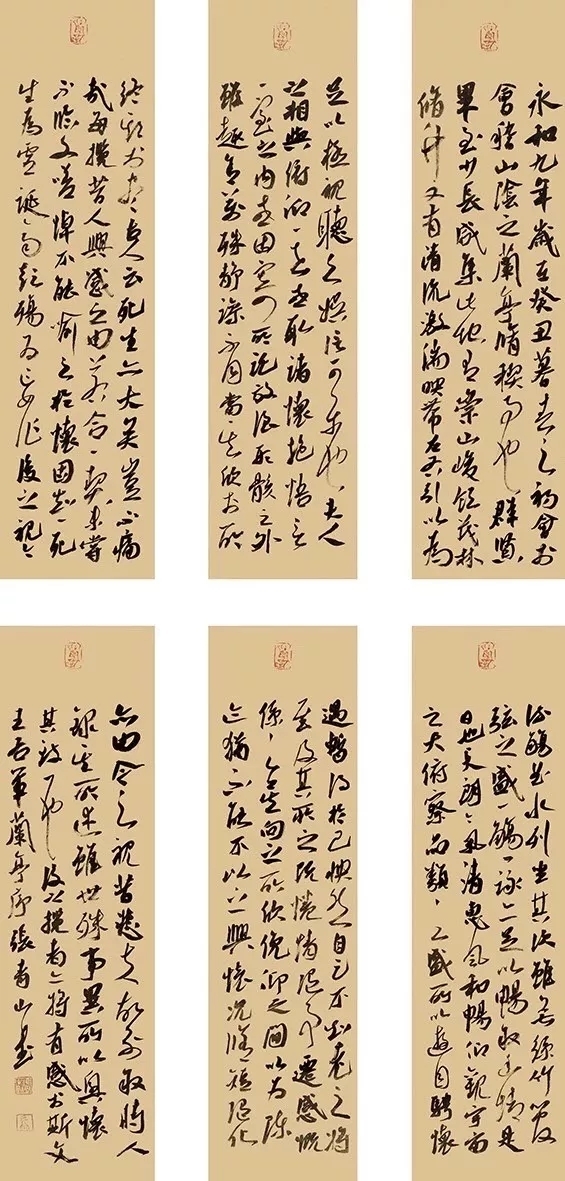 永和九年歲在癸丑暮春之初會於
會稽山陰之蘭亭脩禊事也群賢
畢至少長咸集此地有崇山峻領茂林
脩竹又有清流激湍映帶左右引以為
流觴曲水列坐其次雖無絲竹管
弦之盛一觴一詠亦足以暢敘幽情是
日也天朗氣清惠風和暢仰觀宇宙
之大俯察品類之盛所以遊目騁懷
足以極視聽之娛信可樂也夫人
之相與俯仰一世或取諸懷抱悟言
一室之內或因寄所託放浪形骸之外
雖趣舍萬殊靜躁不同當其欣於所
遇暫得於己快然自足不知老之將
至及其所之既惓情隨事遷感慨
係之矣向之所欣俛仰之間以為陳
跡猶不能不以之興懷況脩短隨化
終期於盡古人云死生亦大矣豈不痛
哉每攬昔人興感之由若合一契未嘗
不臨文嗟悼不能喻之於懷固知一死
生為虛誕齊彭殤為妄作後之視今
亦由今之視昔悲夫故列敘時人
錄其所述雖世殊事異所以興懷
其致一也後之攬者亦將有感於斯文
王右軍蘭亭序張青山書